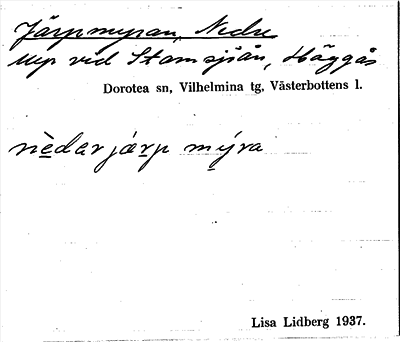 Järpmyran, Nedre
Myr vid Stamsjön, Häggås
Dorotea sn, Vilhelmina tg, Västerbottens l.
nèdarjærp mýra
Lisa Lidberg 1937.